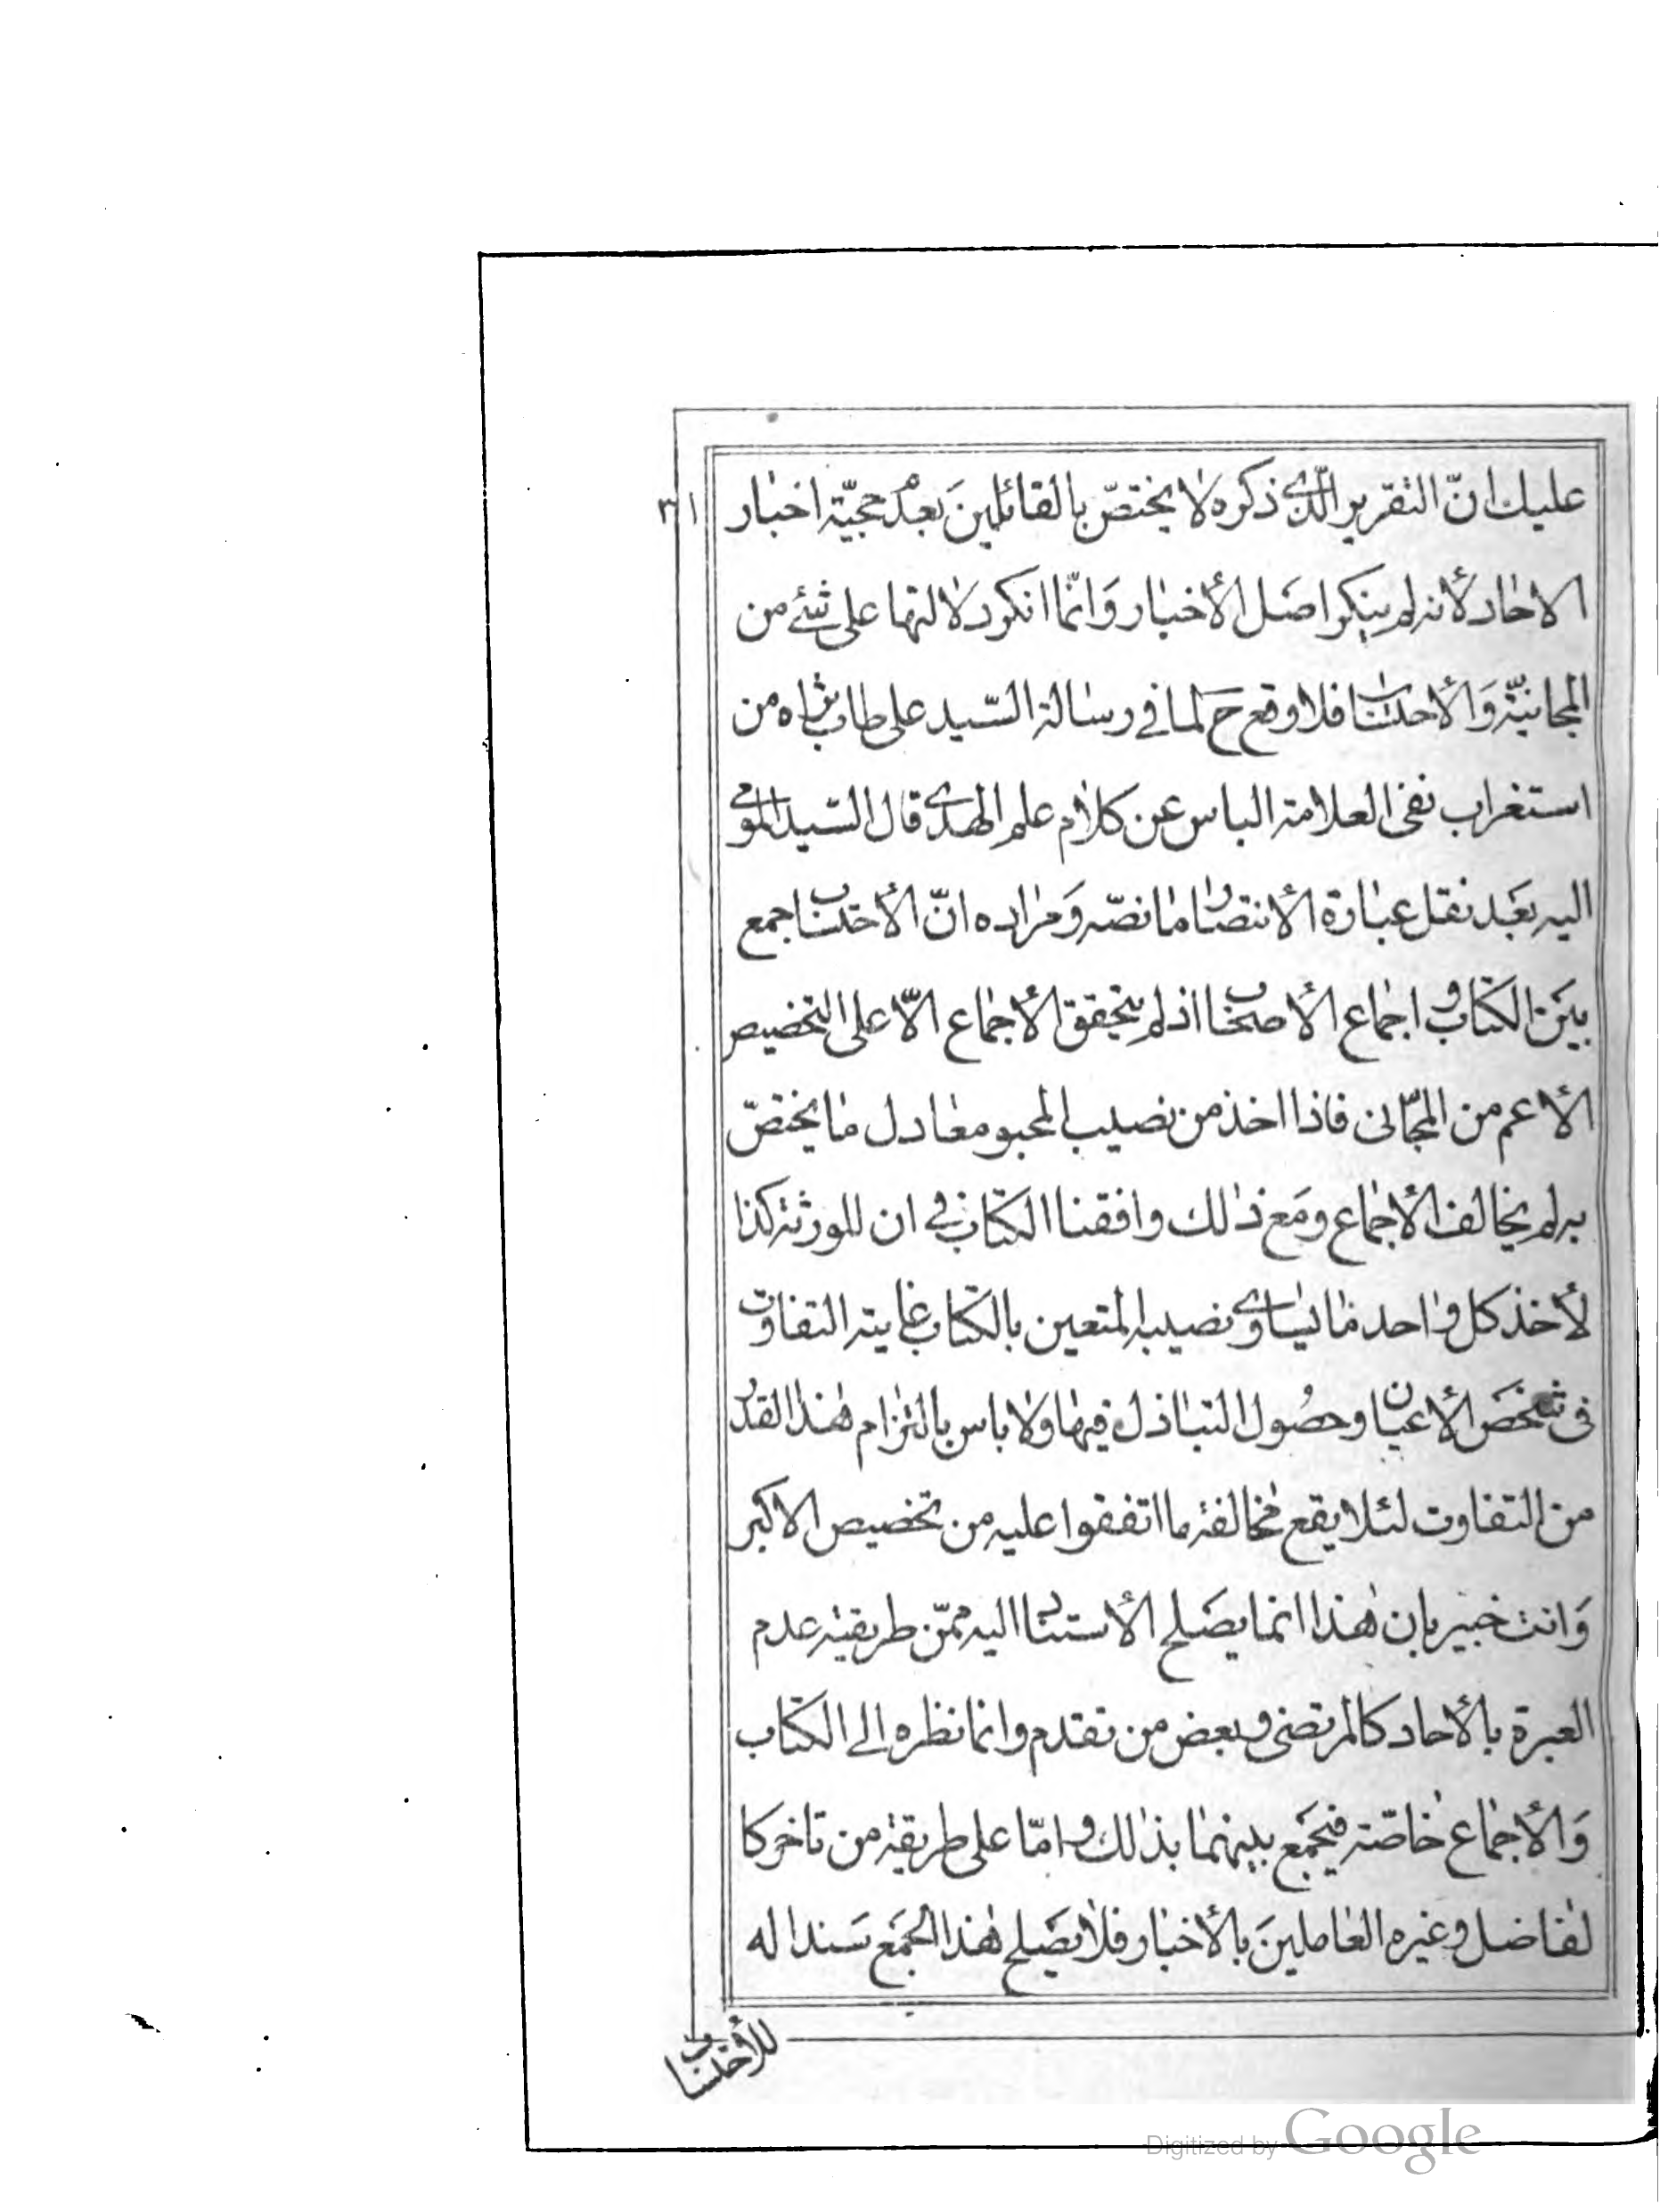 عليك انّ التقرير الّذى ذكره لا يختصّ بالقائلين بعدم حجيّة اخبار
الاحاد لأنه لم ينكر اصل الأخبار وَانّما انكر دلالتها على شئ من
المجانيّة وَالأحتساب فلا وقع ح لما فى رسالة السّيد على طاب ثراه من
استغراب نفى العلامة الباس عن كلام علم الهدى قال السّيد المومى
اليه بعَد نقل عبارة الأنتصار ما نصّه وَمراده انّ الأحتساب جمع
بيَن الكتاب و اجماع الأصحاب اذ لم يتحقق الأجماع الّا على التخصيص
الأعم من المجّانى فاذا اخذ من نصيب المحبو معادل ما يختصّ
به لم يخالف الأجماع ومَع ذلك وافقنا الكتاب فى ان للورثة كذا
لأخذ كل واحد ما يساوى نصيبه المتعين بالكتاب غاية التفاوت
فى تشخّص الأعيان وحصُول التباذل فيها ولا باس بالتزام هذا القدر
من التفاوت لئلا يقع مخالفة ما اتفقوا عليه من تخصيص الاكبر
وَانت خبير بان هذا انما يصَلح الأستناد اليه ممّن طريقته عدم
العبرة بالأحاد كالمرتضى و بعض من تقدم وانما نظره الى الكتاب
وَالأجماع خاصّة فيجمَع بينهما بذلك و امّا على طريقة من تاخر كا
لفاضل وغيره العاملينَ بالأخبار فلا يصَلح هذا الجمَع سَندا له
للأحتساب
Digitized by Google